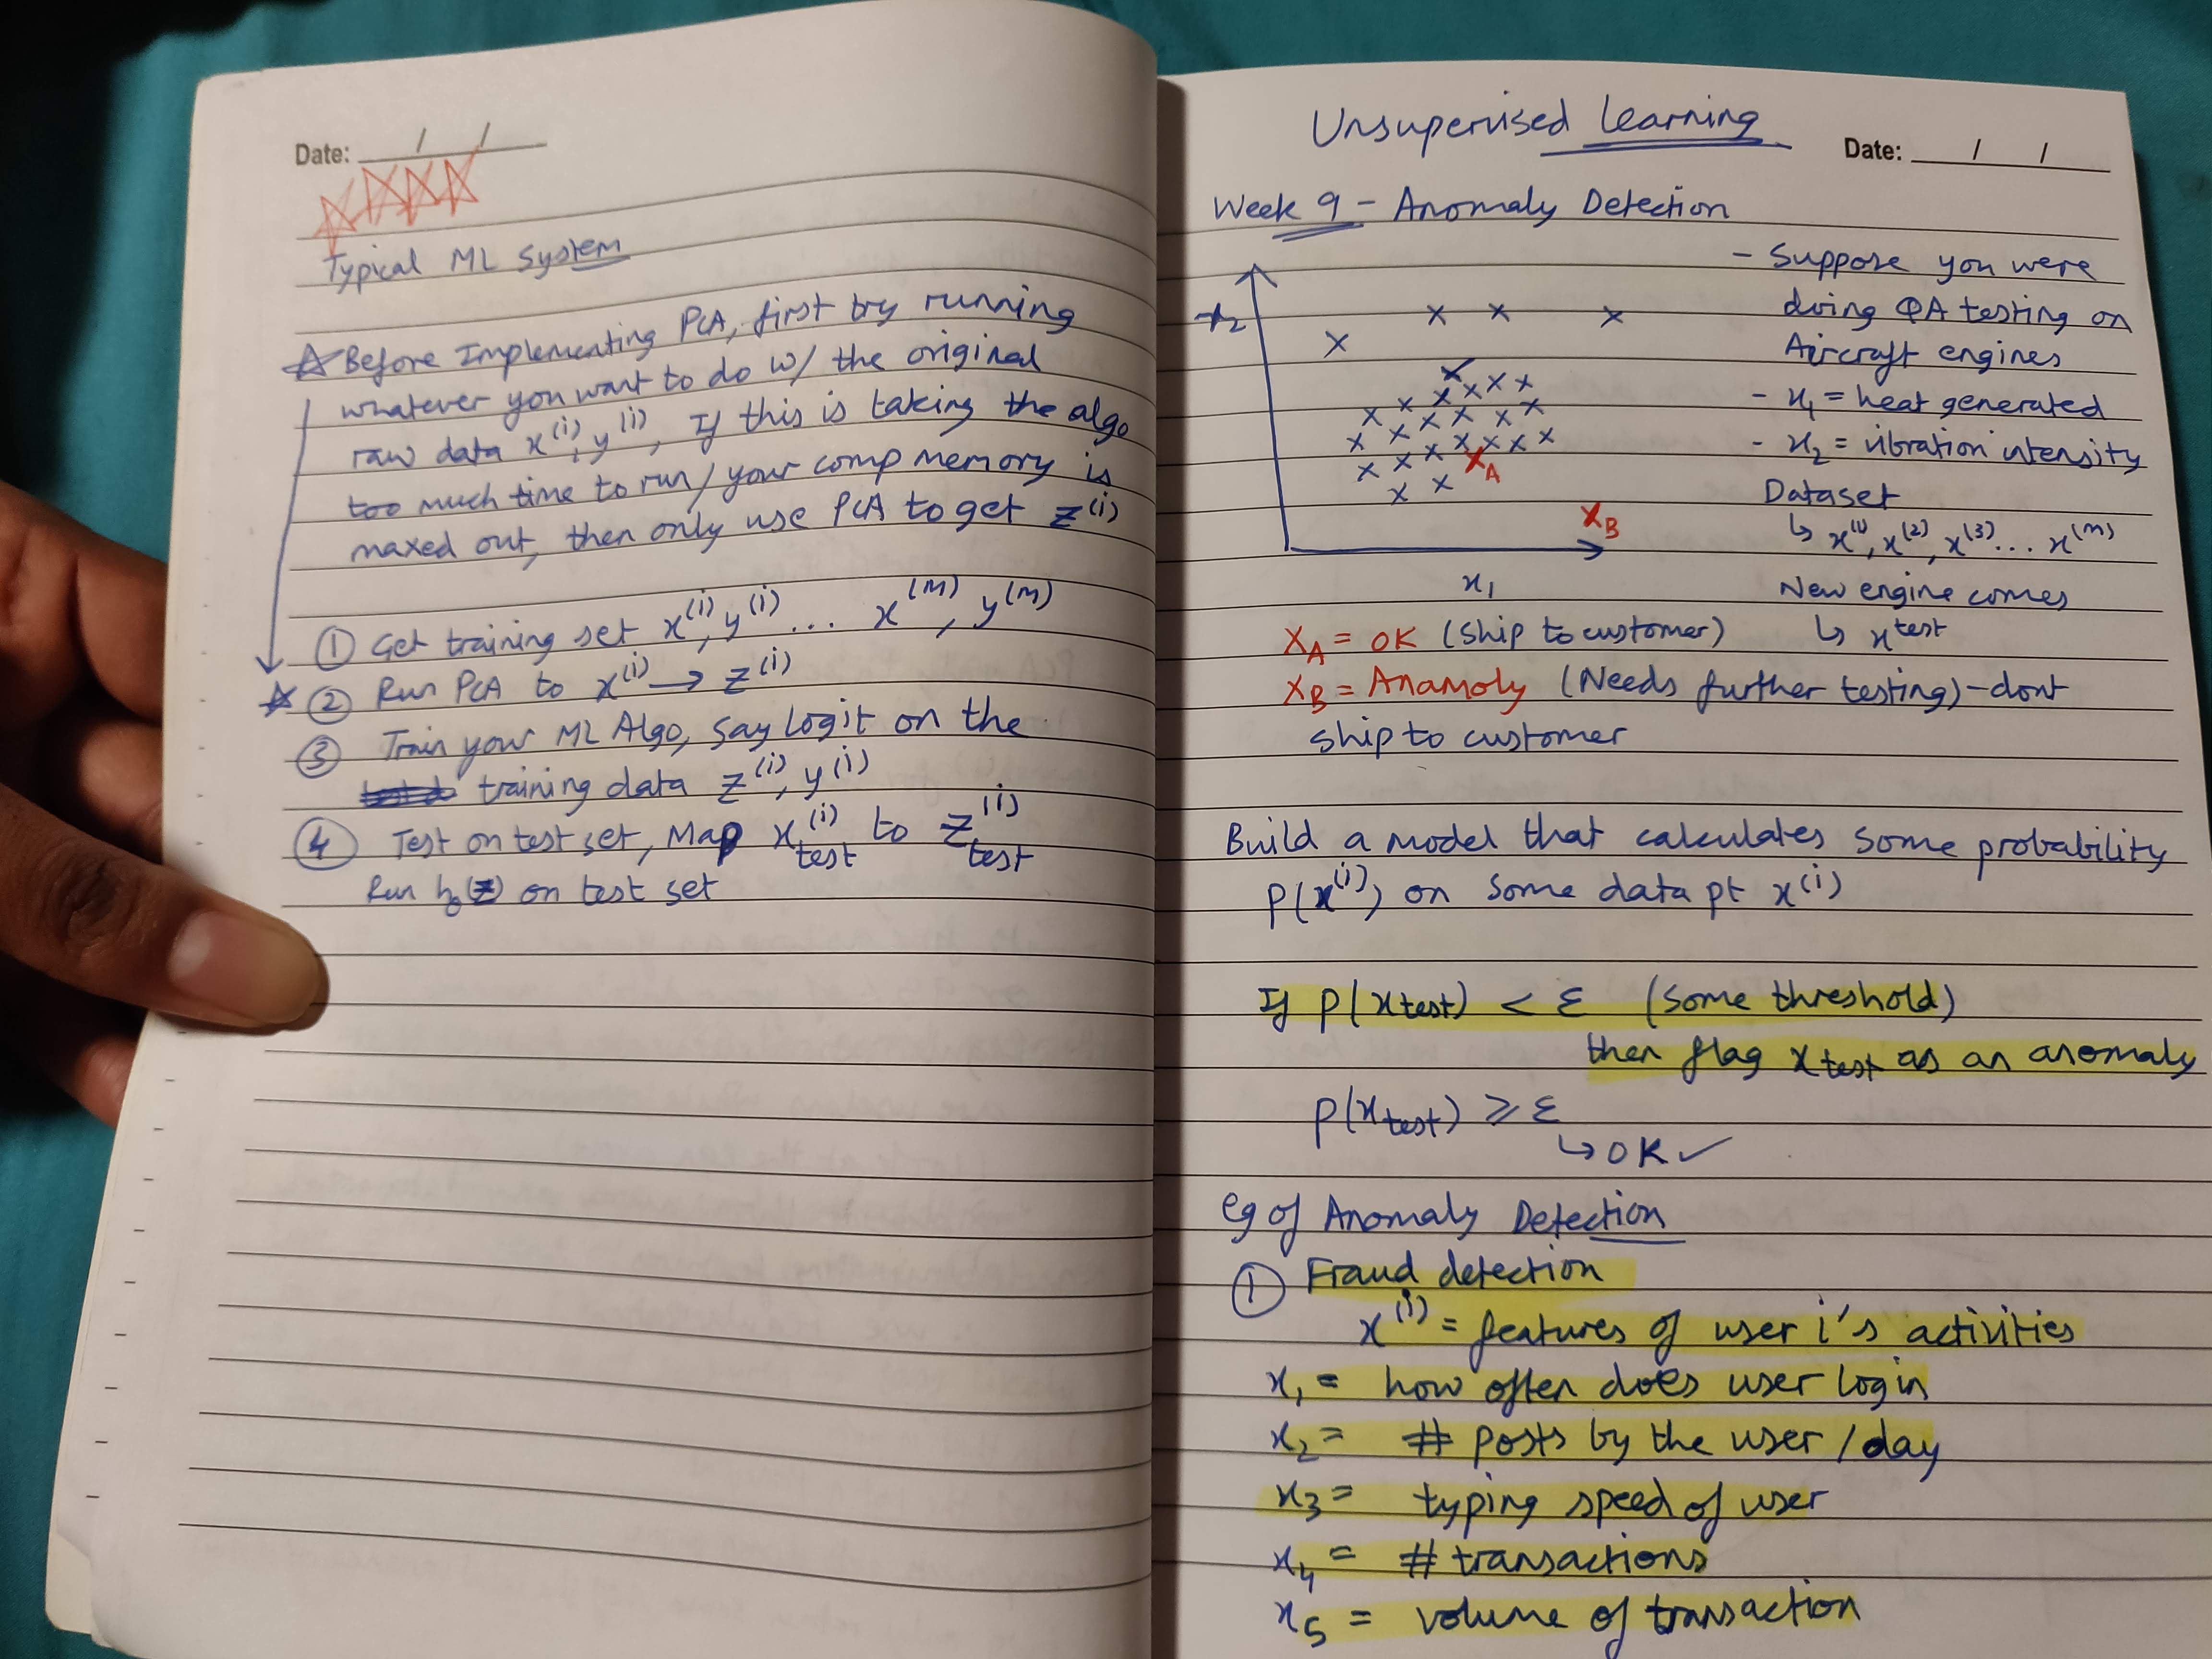 Date: / /
Typical ML System
Before Implementing PCA, first try running
whatever you want to do w/ the original
raw data x^(i), y^(i), If this is taking the algo
too much time to run/your comp memory is
maxed out, then only use PCA to get z^(i)
① Get training set x^(i), y^(i) ... x^(m), y^(m)
② Run PCA to x^(i) → z^(i)
③ Train your ML Algo, say Logit on the
training data z^(i), y^(i)
④ Test on test set, Map x_test^(i) to z_test^(i)
Run h_θ(z) on test set
Unsupervised Learning
Date: / /
Week 9 - Anomaly Detection
- Suppose you were
doing QA testing on
Aircraft engines
- x₁ = heat generated
- x₂ = vibration intensity
Dataset
↳ x^(1), x^(2), x^(3)... x^(m)
New engine comes
↳ x^test
x₂
X_A
X_B
x₁
X_A = OK (Ship to customer)
X_B = Anamoly (Needs further testing) - dont
ship to customer
Build a model that calculates some probability
P(x^(i)) on some data pt x^(i)
If P(x_test) < ε (some threshold)
then flag x_test as an anomaly
P(x_test) ≥ ε
↳ OK ✓
eg of Anomaly Detection
① Fraud detection
x^(i) = features of user i's activities
x₁ = how often does user login
x₂ = # posts by the user / day
x₃ = typing speed of user
x₄ = # transactions
x₅ = volume of transaction